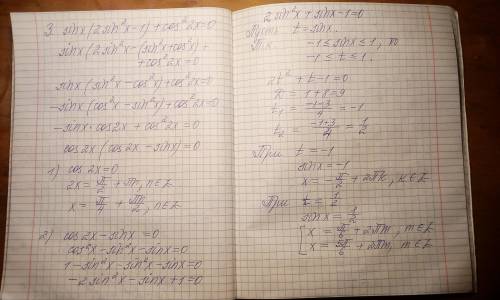 3. sinx(2sin²x-1)+cos²2x=0
sinx(2sin²x-(sin²x+cos²x))+
+cos²2x=0
sinx(sin²x-cos²x)+cos²2x=0
-sinx(cos²x-sin²x)+cos²2x=0
-sinx·cos2x+cos²2x=0
cos2x(cos2x-sinx)=0
1) cos2x=0
2x=π/2+πn, n∈Z
x=π/4+πn/2, n∈Z
2) cos2x-sinx=0
cos²x-sin²x-sinx=0
1-sin²x-sin²x-sinx=0
-2sin²x-sinx+1=0
2sin²x+sinx-1=0
Пусть t=sinx.
Тк -1≤sinx≤1, то
-1≤t≤1.
2t²+t-1=0
D=1+8=9
t₁=(-1-3)/4=-1
t₂=(-1+3)/4=1/2
При t=-1
sinx=-1
x=-π/2+2πk, k∈Z
При t=1/2
sinx=1/2
[x=π/6+2πm, m∈Z
x=5π/6+2πm, m∈Z